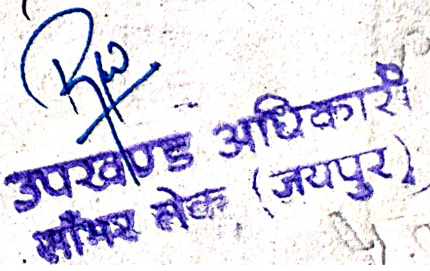 उपखण्ड अधिकारी
सॉंभर लेक (जयपुर)